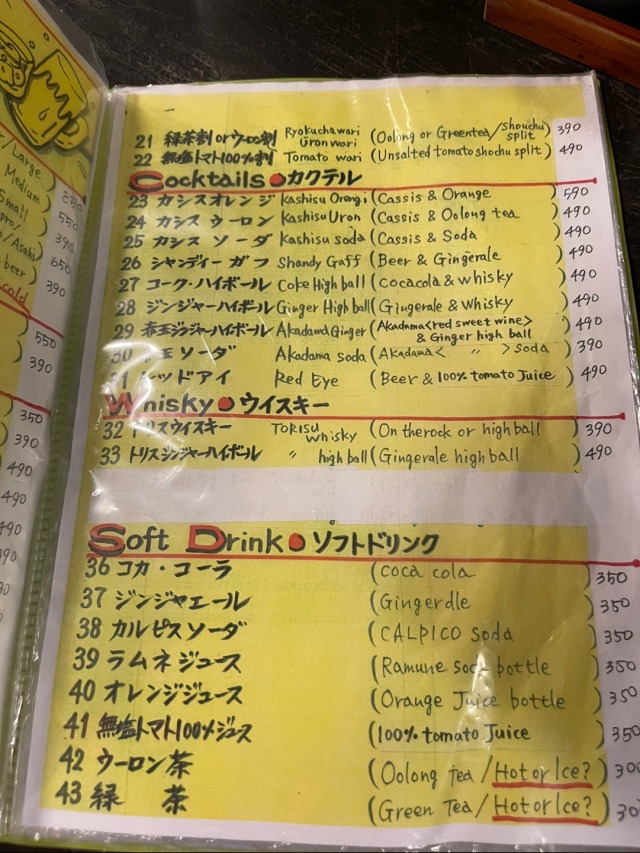 r/Large
Medium
Small
pro/
/Asahi
beer)
cold
550
390
650
390
550
390
350
390
490
490
490
490
21 緑茶割orウーロン割 Ryokuchawari Uronwari (Oolong or Greentea/shouchu split) 390
22 無塩トマト100%割 Tomato wari (Unsalted tomato shochu split) 490
Cocktails●カクテル
23 カシスオレンジ Kashisu Orangi (Cassis & Orange) 590
24 カシス ウーロン Kashisu Uron (Cassis & Oolong tea) 490
25 カシス ソーダ Kashisu soda (Cassis & Soda) 490
26 シャンディー ガフ Shandy Gaff (Beer & Gingerale) 490
27 コーク・ハイボール Coke High ball (cocacola & whisky) 490
28 ジンジャーハイボール Ginger High ball (Gingerale & Whisky) 490
29 赤玉ジンジャーハイボール Akadama Ginger (Akadama<red sweet wine> & Ginger high ball) 490
30 玉ソーダ Akadama soda (Akadama< 〃 >soda) 390
31 レッドアイ Red Eye (Beer & 100% tomato Juice) 490
Whisky●ウイスキー
32 トリスウイスキー TORISU whisky (On therock or high ball) 390
33 トリスジンジャーハイボール 〃 high ball (Gingerale high ball) 490
Soft Drink●ソフトドリンク
36 コカ・コーラ (coca cola) 350
37 ジンジャエール (Gingerale) 350
38 カルピスソーダ (CALPICO soda) 350
39 ラムネジュース (Ramune soda bottle) 350
40 オレンジジュース (Orange Juice bottle) 350
41 無塩トマト100%ジュース (100% tomato Juice) 350
42 ウーロン茶 (Oolong tea/Hot or Ice?) 300
43 緑 茶 (Green Tea/Hot or Ice?) 30